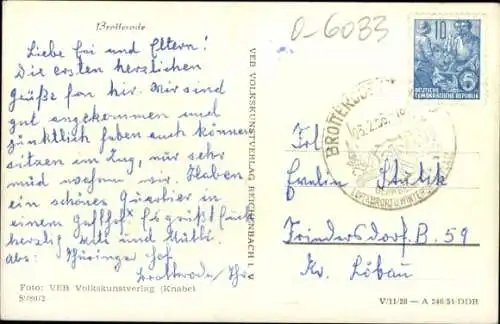 Brotterode
O-6083
Liebe Evi und Eltern!
Die ersten herzlichen
Grüße von hir. Wir sind
gut angekommen und
pünktlich haben auch können
sitzen im Zug, nur sehr
müd wahren wir. Haben
ein schönes Quartier in
einem Gasthof. Es grüßt Euch
herzl. und Mutti.
abs: Thüringer Hof
Brotterode/Thür
Foto: VEB Volkskunstverlag (Knabe)
5/980/2
VEB VOLKSKUNSTVERLAG REICHENBACH i. V.
10
5
DEUTSCHE
DEMOKRATISCHE REPUBLIK
BROTTERODE
LUFTKURORT U. WINTER
Frl.
Stulik
Friedersdorf B. 59
Kr. Löbau
V/11/28 — A 246/54·DDR